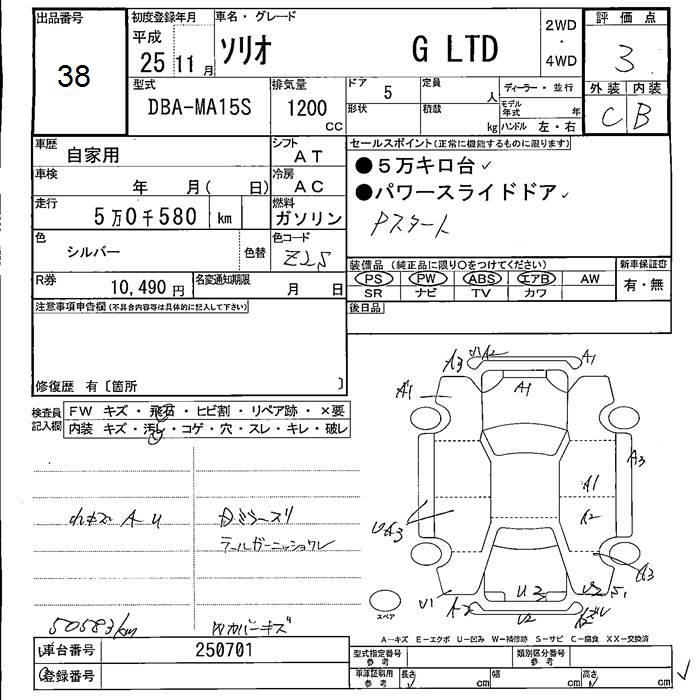 出品番号
38
初度登録年月
平成
25 11月
車名・グレード
ソリオ G LTD
2WD
・
4WD
評価点
3
外装 内装
C B
型式
DBA-MA15S
排気量
1200
CC
ドア
5
定員
人
形状
積載
kg
ディーラー・並行
モデル
年式
年
ハンドル 左・右
車歴
自家用
シフト
AT
車検
年 月( 日)
冷房
AC
走行
5万0千580 km
燃料
ガソリン
色
シルバー
色替
色コード
Z2S
R券
10,490円
名変通知期限
月 日
セールスポイント(正常に機能するものに限ります)
●5万キロ台
●パワースライドドア
Pスタート
装備品(純正品に限り○をつけてください)
PS PW ABS エアB AW
SR ナビ TV カワ
新車保証書
有・無
後日品
注意事項申告欄(不具合内容等は具体的に記入して下さい)
修復歴 有〔箇所 〕
検査員
記入欄
FW キズ・飛石・ヒビ割・リペア跡・×要
内装 キズ・汚レ・コゲ・穴・スレ・キレ・破レ
A U
テールガーニッショウレ
50583km
Wカバーキズ
A3
A2
A1
A1
A1
A3
A1
A2
A3
A3
U1
A2
U2
U3
U2
S1
スペア
A-キズ E-エクボ U-凹み W-補修跡 S-サビ C-腐食 XX-交換済
車台番号
250701
登録番号
型式指定番号
参考
類別区分番号
参考
車庫証明用
参考
長さ cm 幅 cm 高さ cm